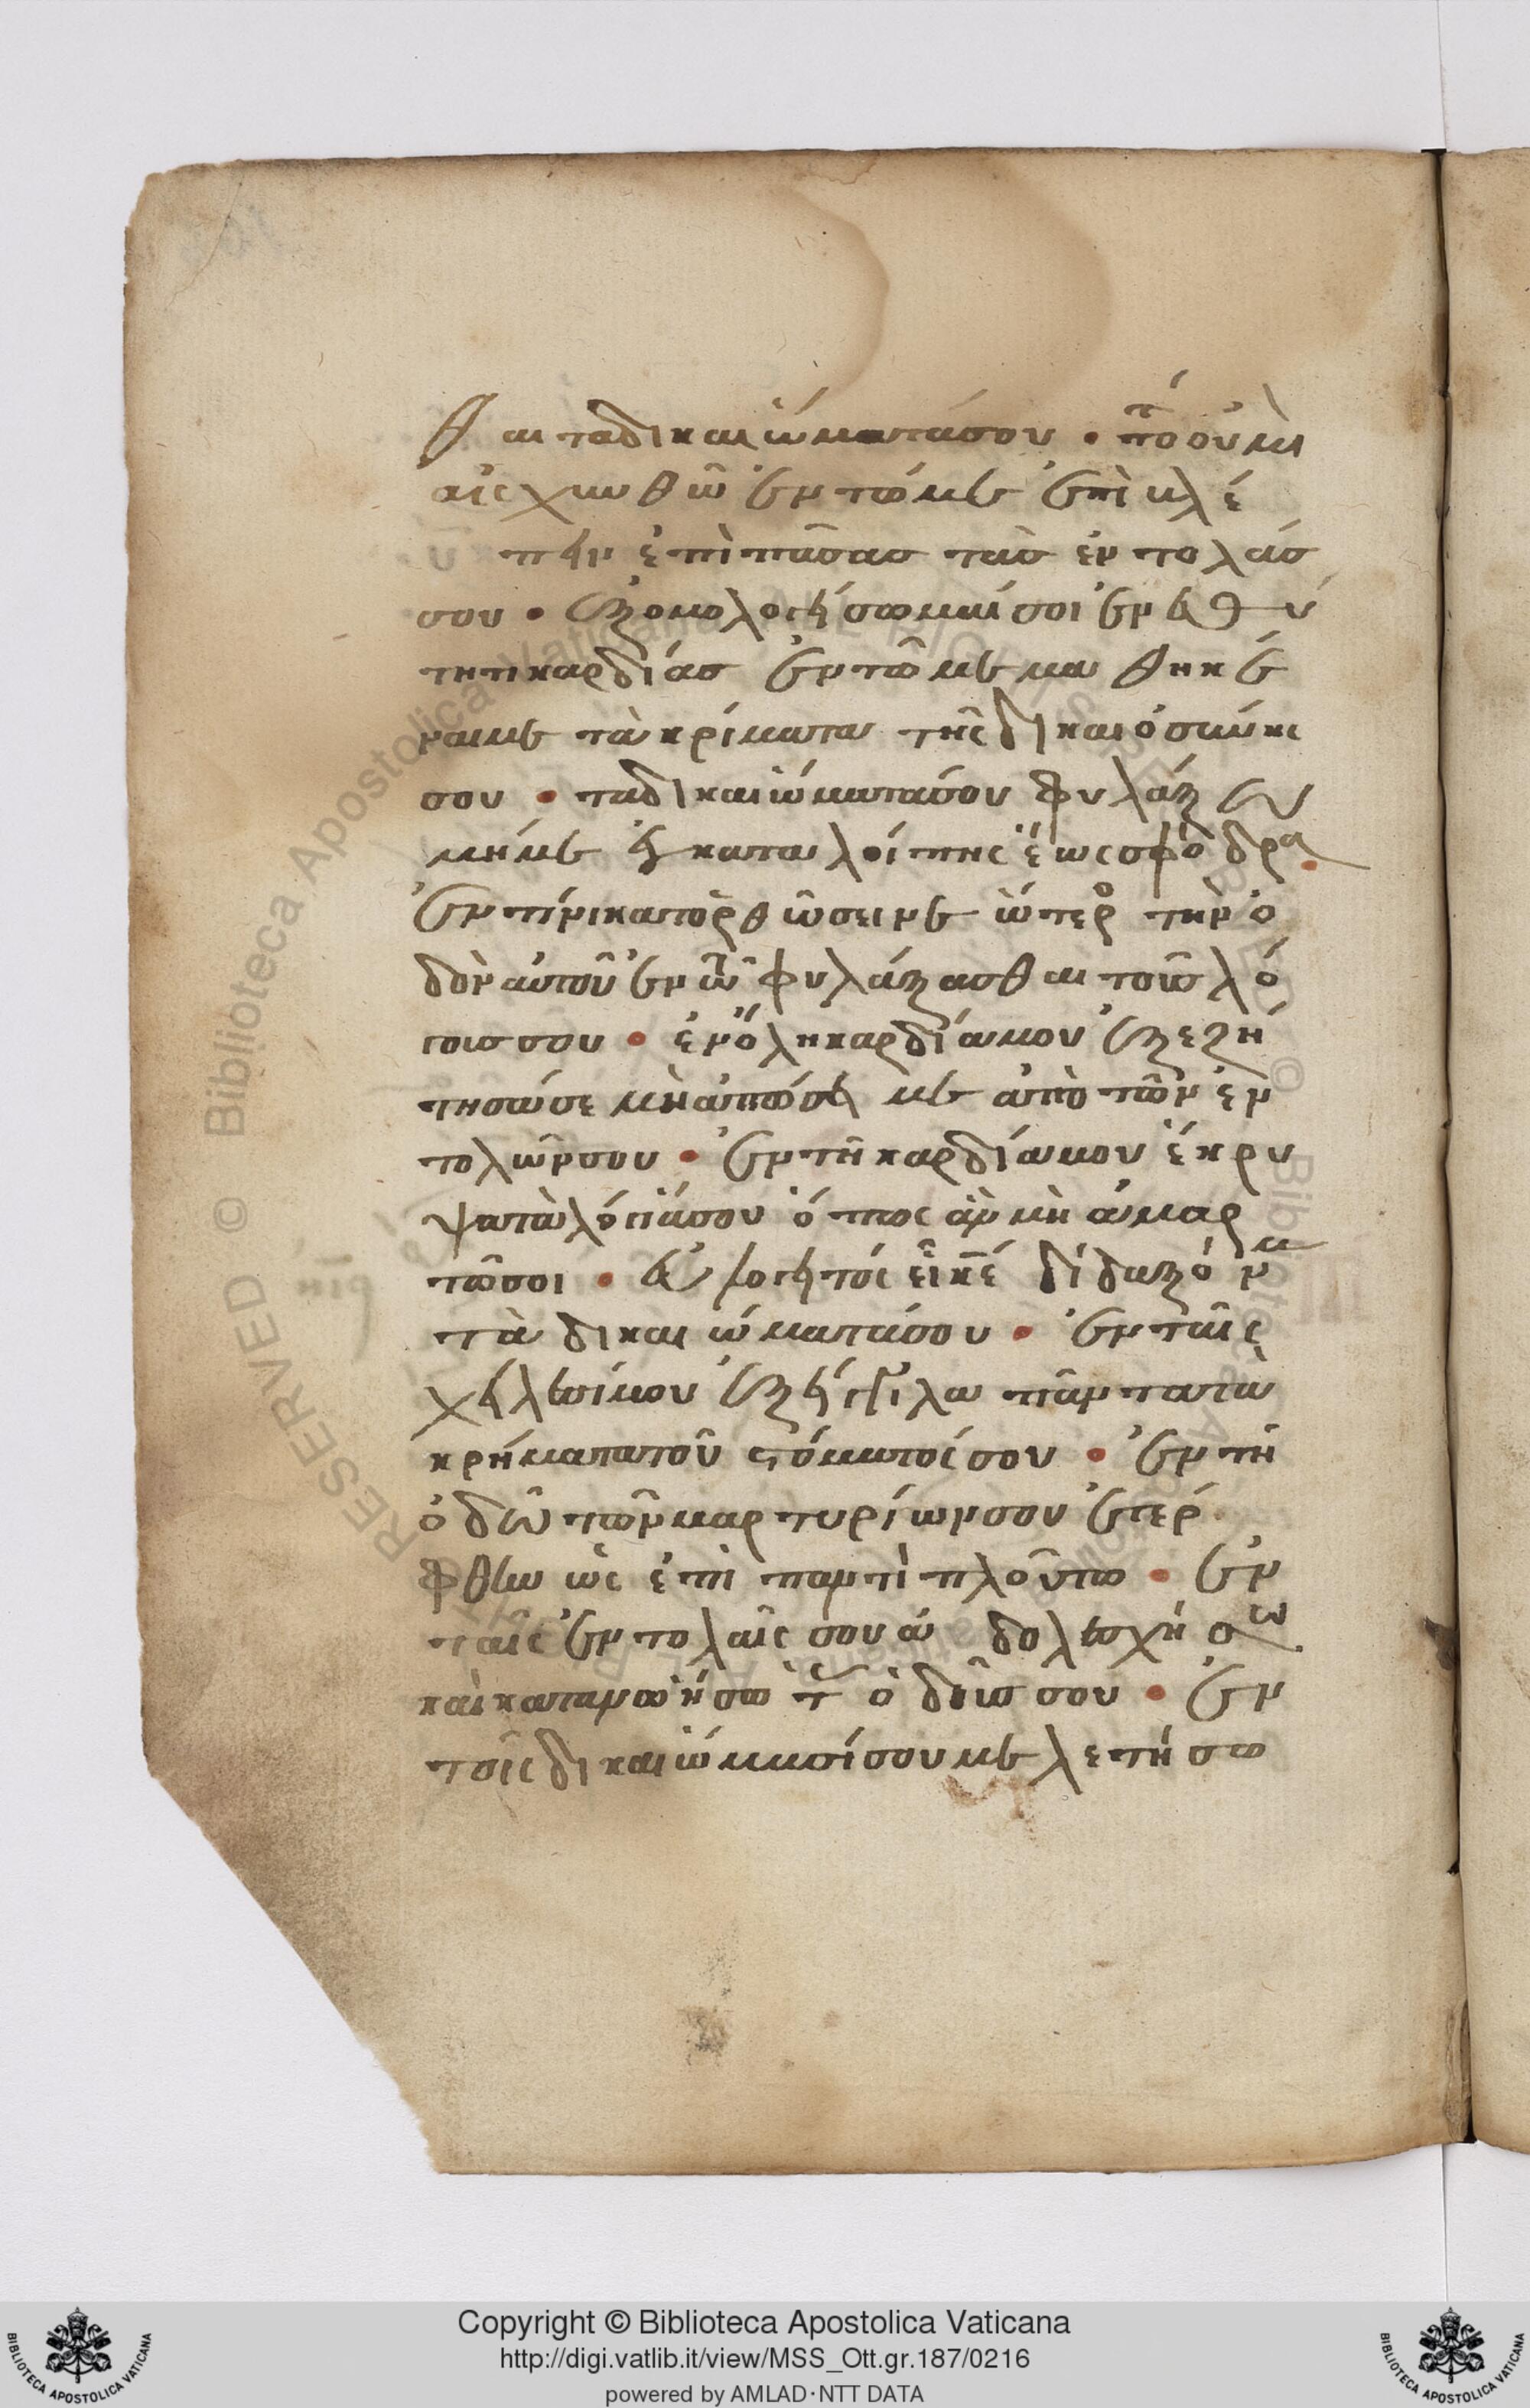 θαι τα δικαιώματά σου • τότε οὐ μὴ
αἰσχυνθῶ ἐν τώ με ἐπιβλέ
πην ἐπὶ πᾶσας τὰς ἐντολάς
σου • ἐξομολογήσωμαί σοι ἐν εὐθύ
τητι καρδίας ἐν τῶ με μαθηκέ
ναι με τὰ κρίματα τῆς δικαιοσύνης
σου • τα δικαιώματα σου φυλάξω
μή με ἐγκαταλοίπης ἕως σφόδρα •
ἐν τίνι κατορθῶσει νεώτερος τὴν ὁ
δὸν αὐτοῦ ἐν τῶ φυλάξασθαι τοὺς λό
γους σου • ἐν ὅλη καρδία μου ἐξεζή
τησά σε μὴ ἀπώση με ἀπὸ τῶν ἐν
τολῶν σου • ἐν τῆ καρδία μου ἔκρυ
ψα τὰ λόγιά σου ὅπος ἂν μὴ ἁμαρ
τῶ σοι • εὐλογητός εἶ κέ δίδαξόν με
τὰ δικαιώματά σου • ἐν τοῖς
χείλεσί μου ἐξήγγιλα πάντα τὰ
κρήματα τοῦ στόματός σου • ἐν τῆ
ὁδῶ τῶν μαρτυρίων σου ἐτέρ
φθην ὡς ἐπὶ παντὶ πλούτω • ἐν
ταῖς ἐντολαῖς σου ἀδολεσχήσω
καὶ κατανοήσω τὰς ὁδούς σου • ἐν
τοῖς δικαιώμασί σου μελετήσω
Copyright © Biblioteca Apostolica Vaticana
http://digi.vatlib.it/view/MSS_Ott.gr.187/0216
powered by AMLAD·NTT DATA